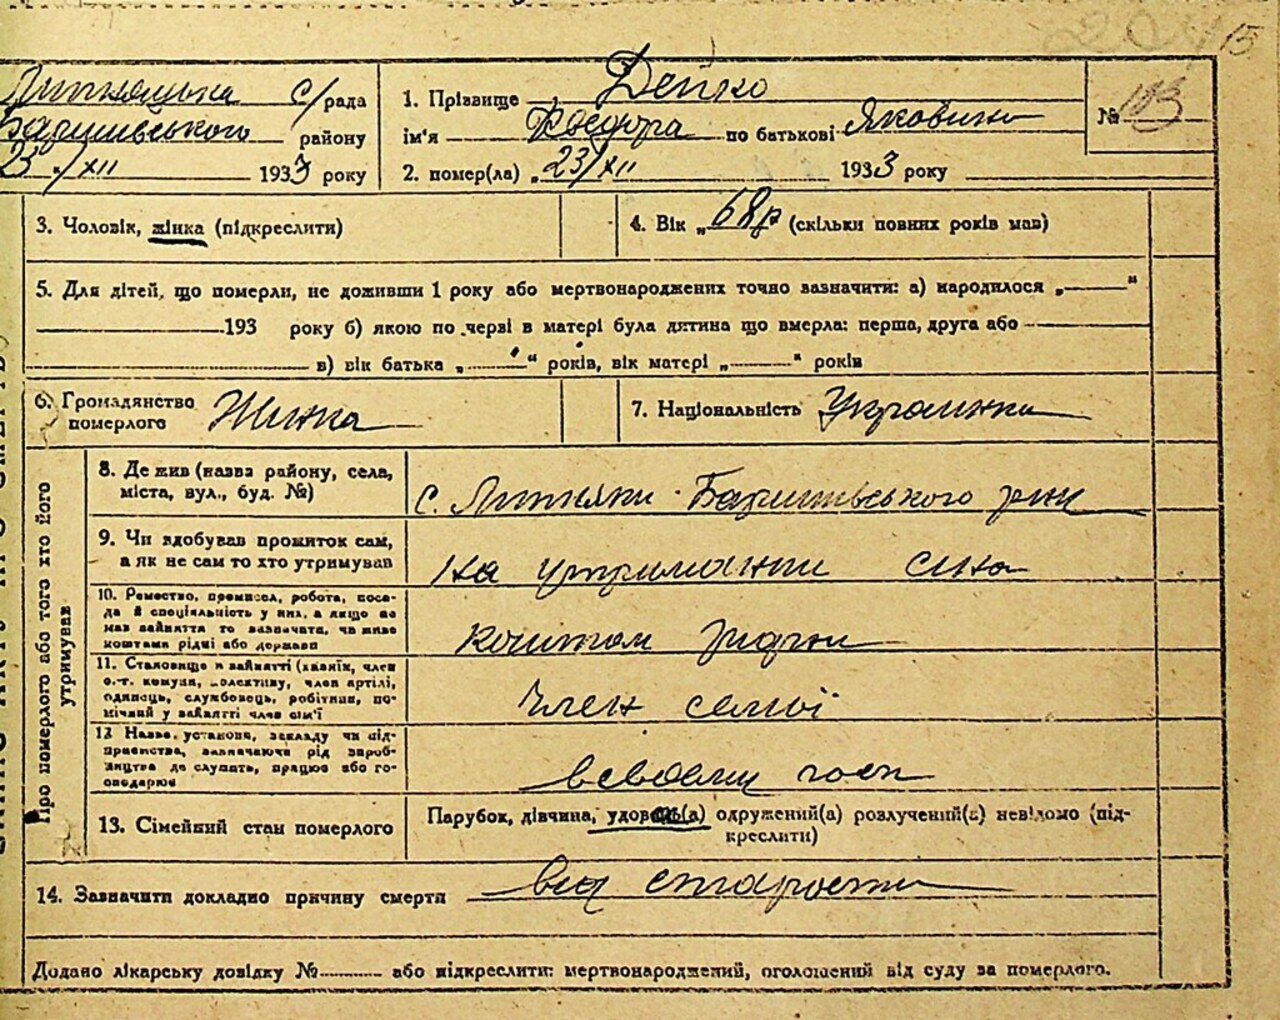 15
Литняцька с/рада
Баришівського району
23/XII 1933 року
1. Прізвище Дейко
ім'я Хведора по батькові Яковина
№ 103
2. помер(ла) „23/XII 1933 року
3. Чоловік, жінка (підкреслити)
4. Вік „68 р (скільки повних років мав)
5. Для дітей, що померли, не доживши 1 року або мертвонароджених точно зазначити: а) народилося „ “
193 року б) якою по черві в матері була дитина що вмерла: перша, друга або
в) вік батька „ “ років, вік матері „ “ років
6. Громадянство
померлого
7. Національність Украинка
Про померлого або того хто його
утримував
8. Де жив (назва району, села,
міста, вул., буд. №)
с. Литняки Баришівського р-ну
9. Чи здобував прожиток сам,
а як не сам то хто утримував
на утриманни сина
10. Ремество, промисел, робота, поса-
да й спеціяльність у них, а якщо не
мав зайняття то зазначати, чи живе
коштами рідні або держави
коштом рідни
11. Становище в зайнятті (хазяїн, член
с.-г. комуни, колективу, член артілі,
одинець, службовець, робітник, по-
мічний у зайнятті член сім'ї
член семьї
12 Назва установи, закладу чи під-
приємства, зазначаючи рід вироб-
ництва де служить, працює або го-
сподарює
в своєму госп
13. Сімейний стан померлого
Парубок, дівчина, удовець(а) одружений(а) розлучений(а) невідомо (під-
креслити)
14. Зазначити докладно причину смерти від старости
Додано лікарську довідку № або підкреслити: мертвонароджений, оголошений від суду за померлого.